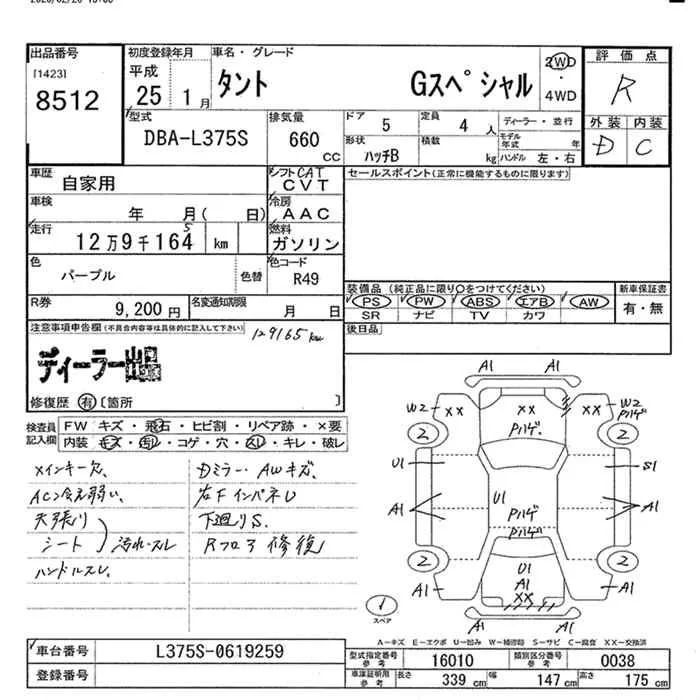 出品番号
[1423]
8512
初度登録年月
平成
25 1月
車名・グレード
タント Gスペシャル
2WD
・
4WD
評価点
R
外装 内装
D C
型式
DBA-L375S
排気量
660
CC
ドア 5
定員 4人
ディーラー・並行
形状 ハッチB
積載 kg
モデル年式 年
ハンドル 左・右
車歴
自家用
シフト CAT
CVT
セールスポイント(正常に機能するものに限ります)
車検
年 月( 日)
冷房
AAC
走行
12万9千164 km
5
燃料
ガソリン
色
パープル
色替
色コード
R49
R券
9,200円
名変通知期限
月 日
装備品(純正品に限り○をつけてください)
PS PW ABS エアB AW
SR ナビ TV カワ
新車保証書
有・無
後日品
注意事項申告欄(不具合内容等は具体的に記入して下さい)
129165km
ディーラー出品
修復歴 有 〔箇所 〕
検査員記入欄
FW キズ・飛石・ヒビ割・リペア跡・×要
内装 キズ・汚れ・コゲ・穴・スレ・キレ・破レ
×インキー欠、
AC冷え弱い、
天張り
シート 汚れ・スレ
ハンドルスレ、
Dミラー・AWキズ、
右FインパネU
下廻りS.
Rフロア修復
A1 A1
W2 XX XX XX W2
Pハゲ. Pハゲ
2 2
U1 S1
U1
A1 A1
Pハゲ
Pハゲ
2 2
U1
A1
XX
A1 A1
A1 A1
1
スペア
A-キズ E-エクボ U-凹み W-補修跡 S-サビ C-腐食 XX-交換済
車台番号
L375S-0619259
登録番号
型式指定番号
参考
16010
類別区分番号
参考
0038
車庫証明用
参考
長さ 339 cm
幅 147 cm
高さ 175 cm